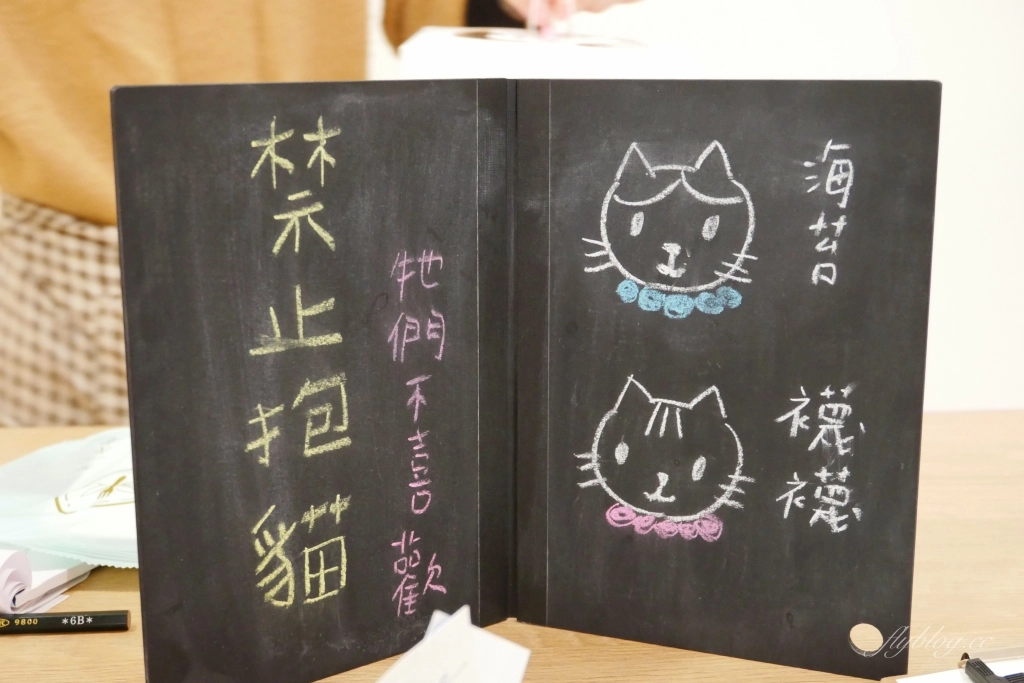 禁止抱貓
牠們不喜歡
海苔
襪襪
9800 *6B*
flyblog.cc